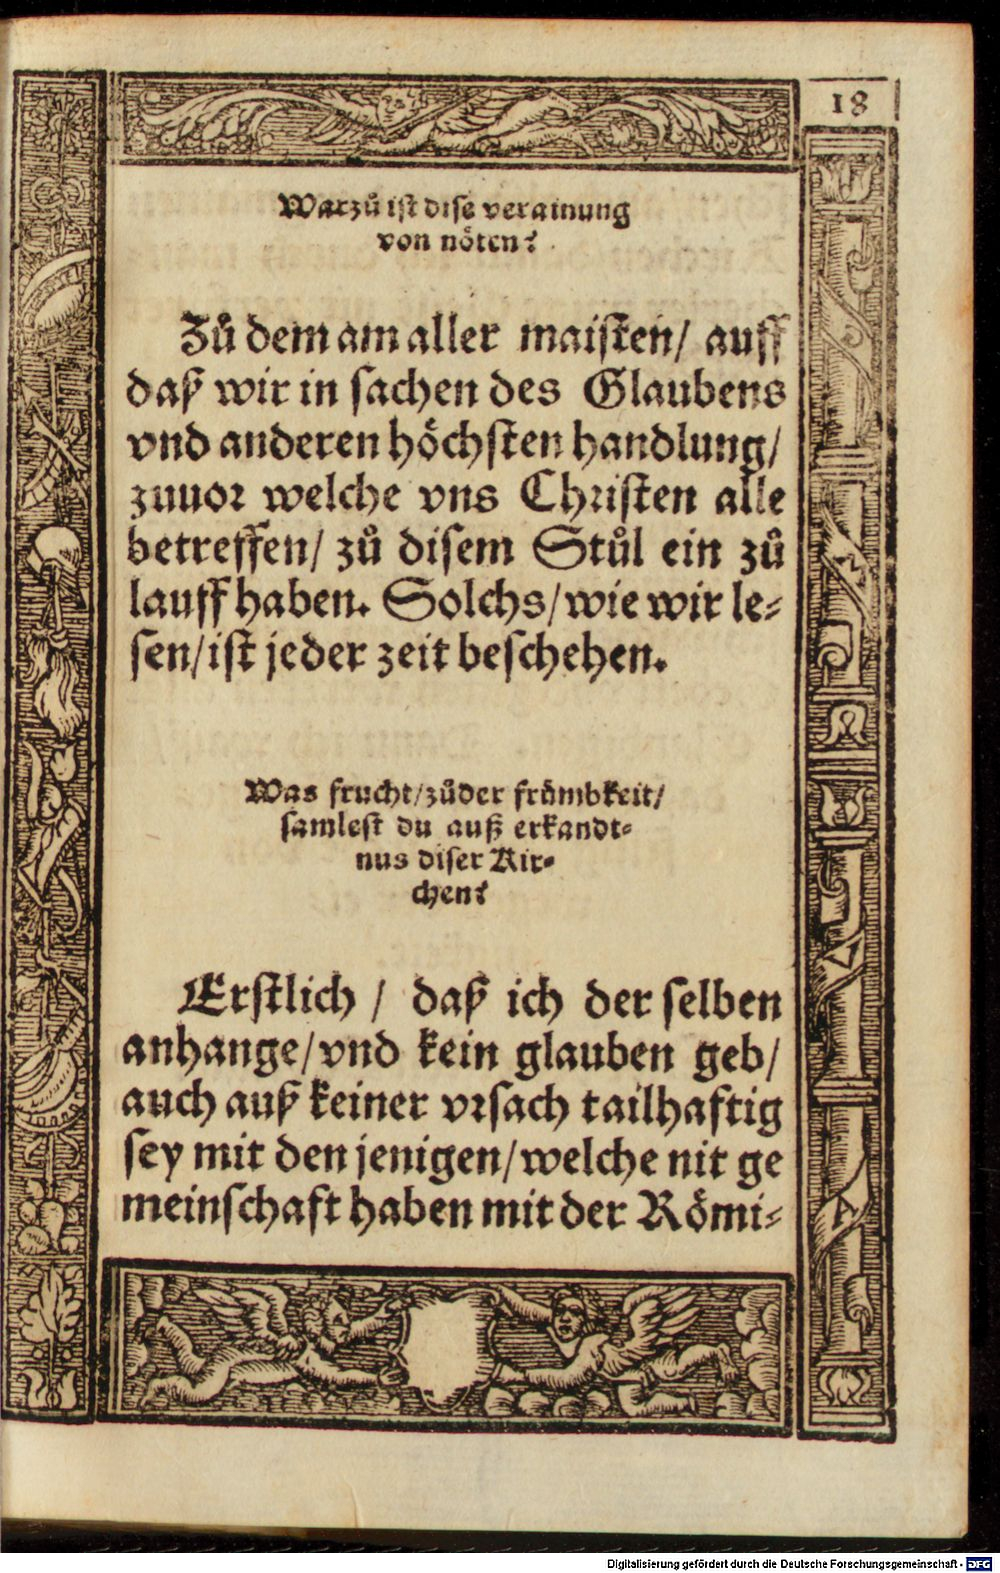 18
Warzů ist dise verainung
von nöten?
Zů dem am aller maisten/ auff
daß wir in sachen des Glaubens
vnd anderen höchsten handlung/
zuuor welche vns Christen alle
betreffen/ zů disem Stůl ein zů
lauff haben. Solchs/ wie wir le-
sen/ ist jeder zeit beschehen.
Was frucht/ zůder frümbkeit/
samlest du auß erkandt-
nus diser Kir-
chen?
Erstlich / daß ich der selben
anhange/ vnd kein glauben geb/
auch auß keiner vrsach tailhaftig
sey mit den jenigen/ welche nit ge
meinschaft haben mit der Römi-
Digitalisierung gefördert durch die Deutsche Forschungsgemeinschaft - DFG